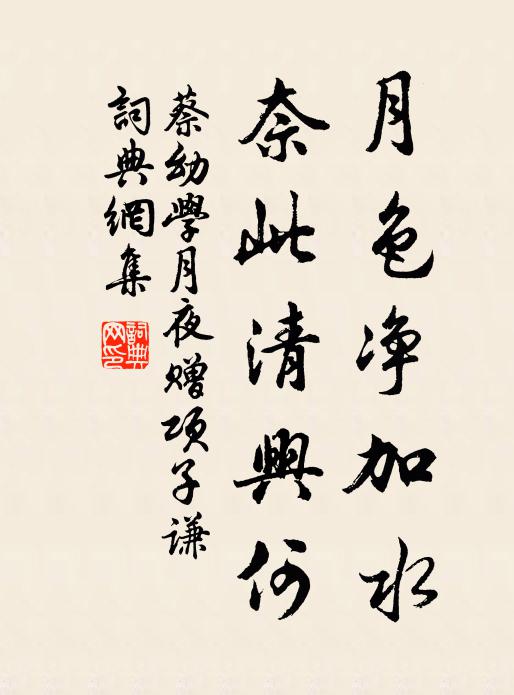 月色净加水
奈此清興何
蔡幼學月夜赠項子谦
詞典網集
詞典網印